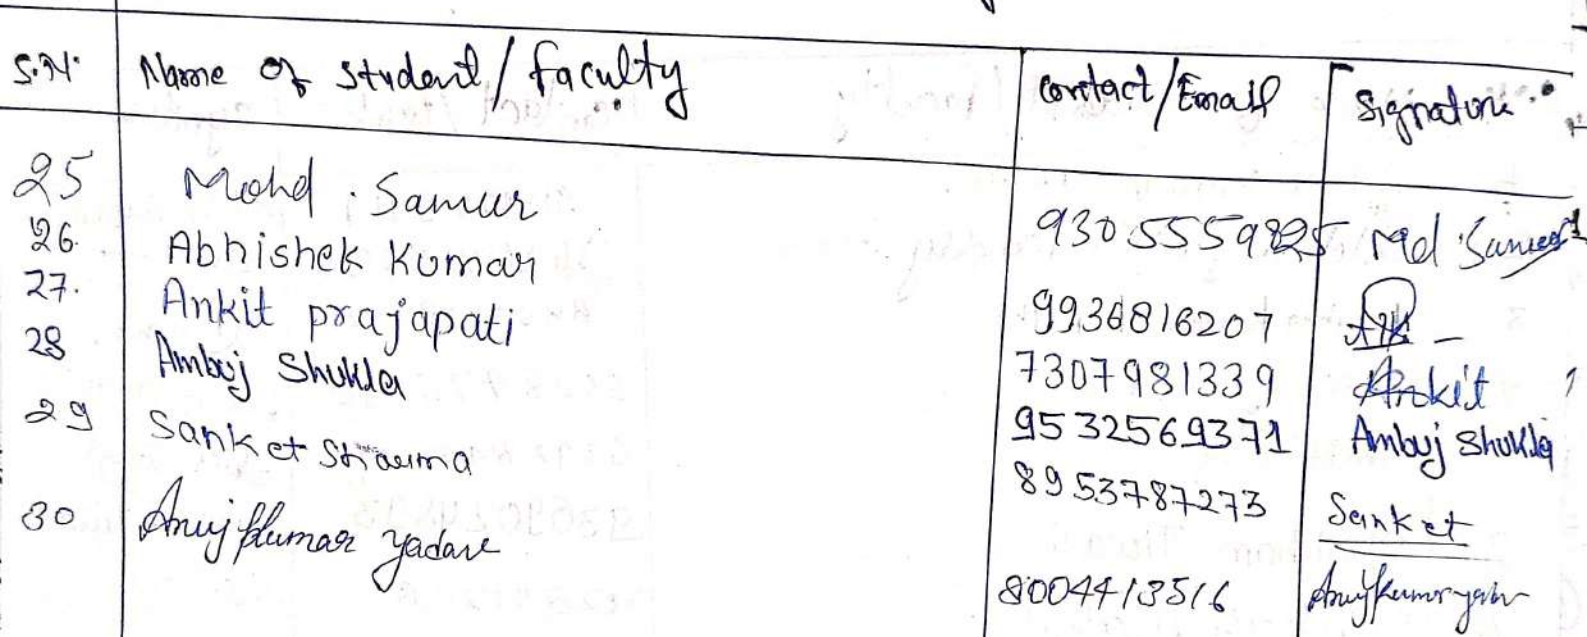 S.N. Name of Student/faculty Contact/Email Signature
25 Mohd. Sameer 9305559825 Md. Sameer
26. Abhishek Kumar 9936816207
27. Ankit prajapati 7307981339 Ankit
28 Ambuj Shukla 9532569371 Ambuj Shukla
29 Sanket Sharma 8953787273 Sanket
30 Anuj Kumar Yadav 8004413516 Anuj Kumar Yadav